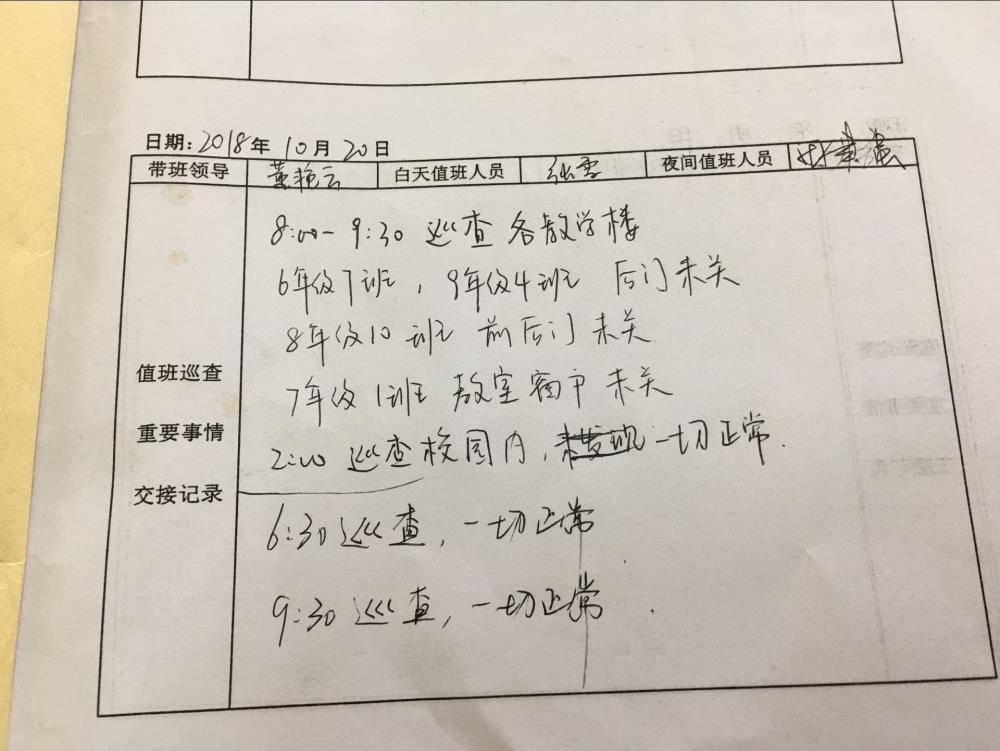 日期：2018年10月20日
带班领导 董艳云 白天值班人员 张雪 夜间值班人员
8:00-9:30 巡查各教学楼
6年级7班，9年级4班 后门未关
8年级10班 前后门未关
7年级1班 教室窗户未关
值班巡查
重要事情
交接记录
2:00 巡查校园内，未发现一切正常.
6:30巡查，一切正常
9:30巡查，一切正常.